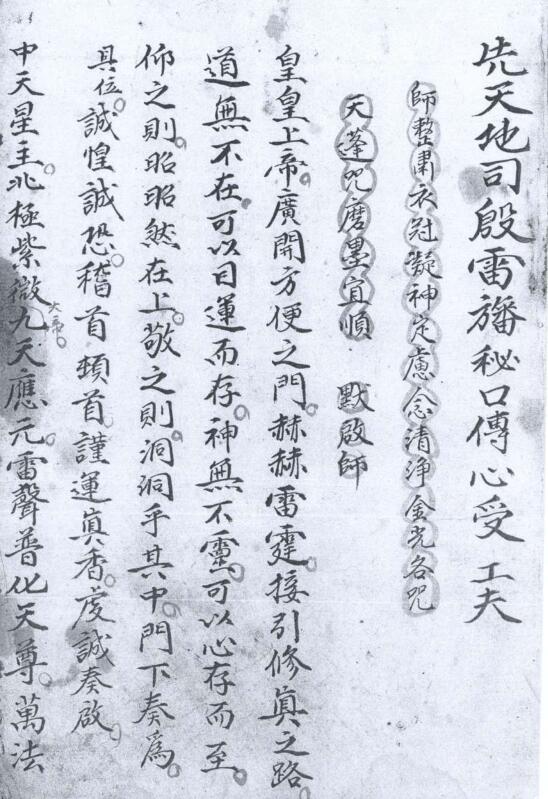 先天地司殷雷旛秘口傳心受 工夫
師整肅衣冠凝神定慮念清淨金光各咒
天蓬咒磨墨宜順 默啟師
皇皇上帝。廣開方便之門。赫赫雷霆。接引修真之路。
道無不在。可以目運而存。神無不靈。可以心存而至。
仰之則。昭昭然在上。敬之則。洞洞乎其中。門下奏為。
具位。誠惶誠恐。稽首頓首。謹運真香。虔誠奏啟。
中天星主。北極紫微大帝。九天應元。雷聲普化天尊。萬法